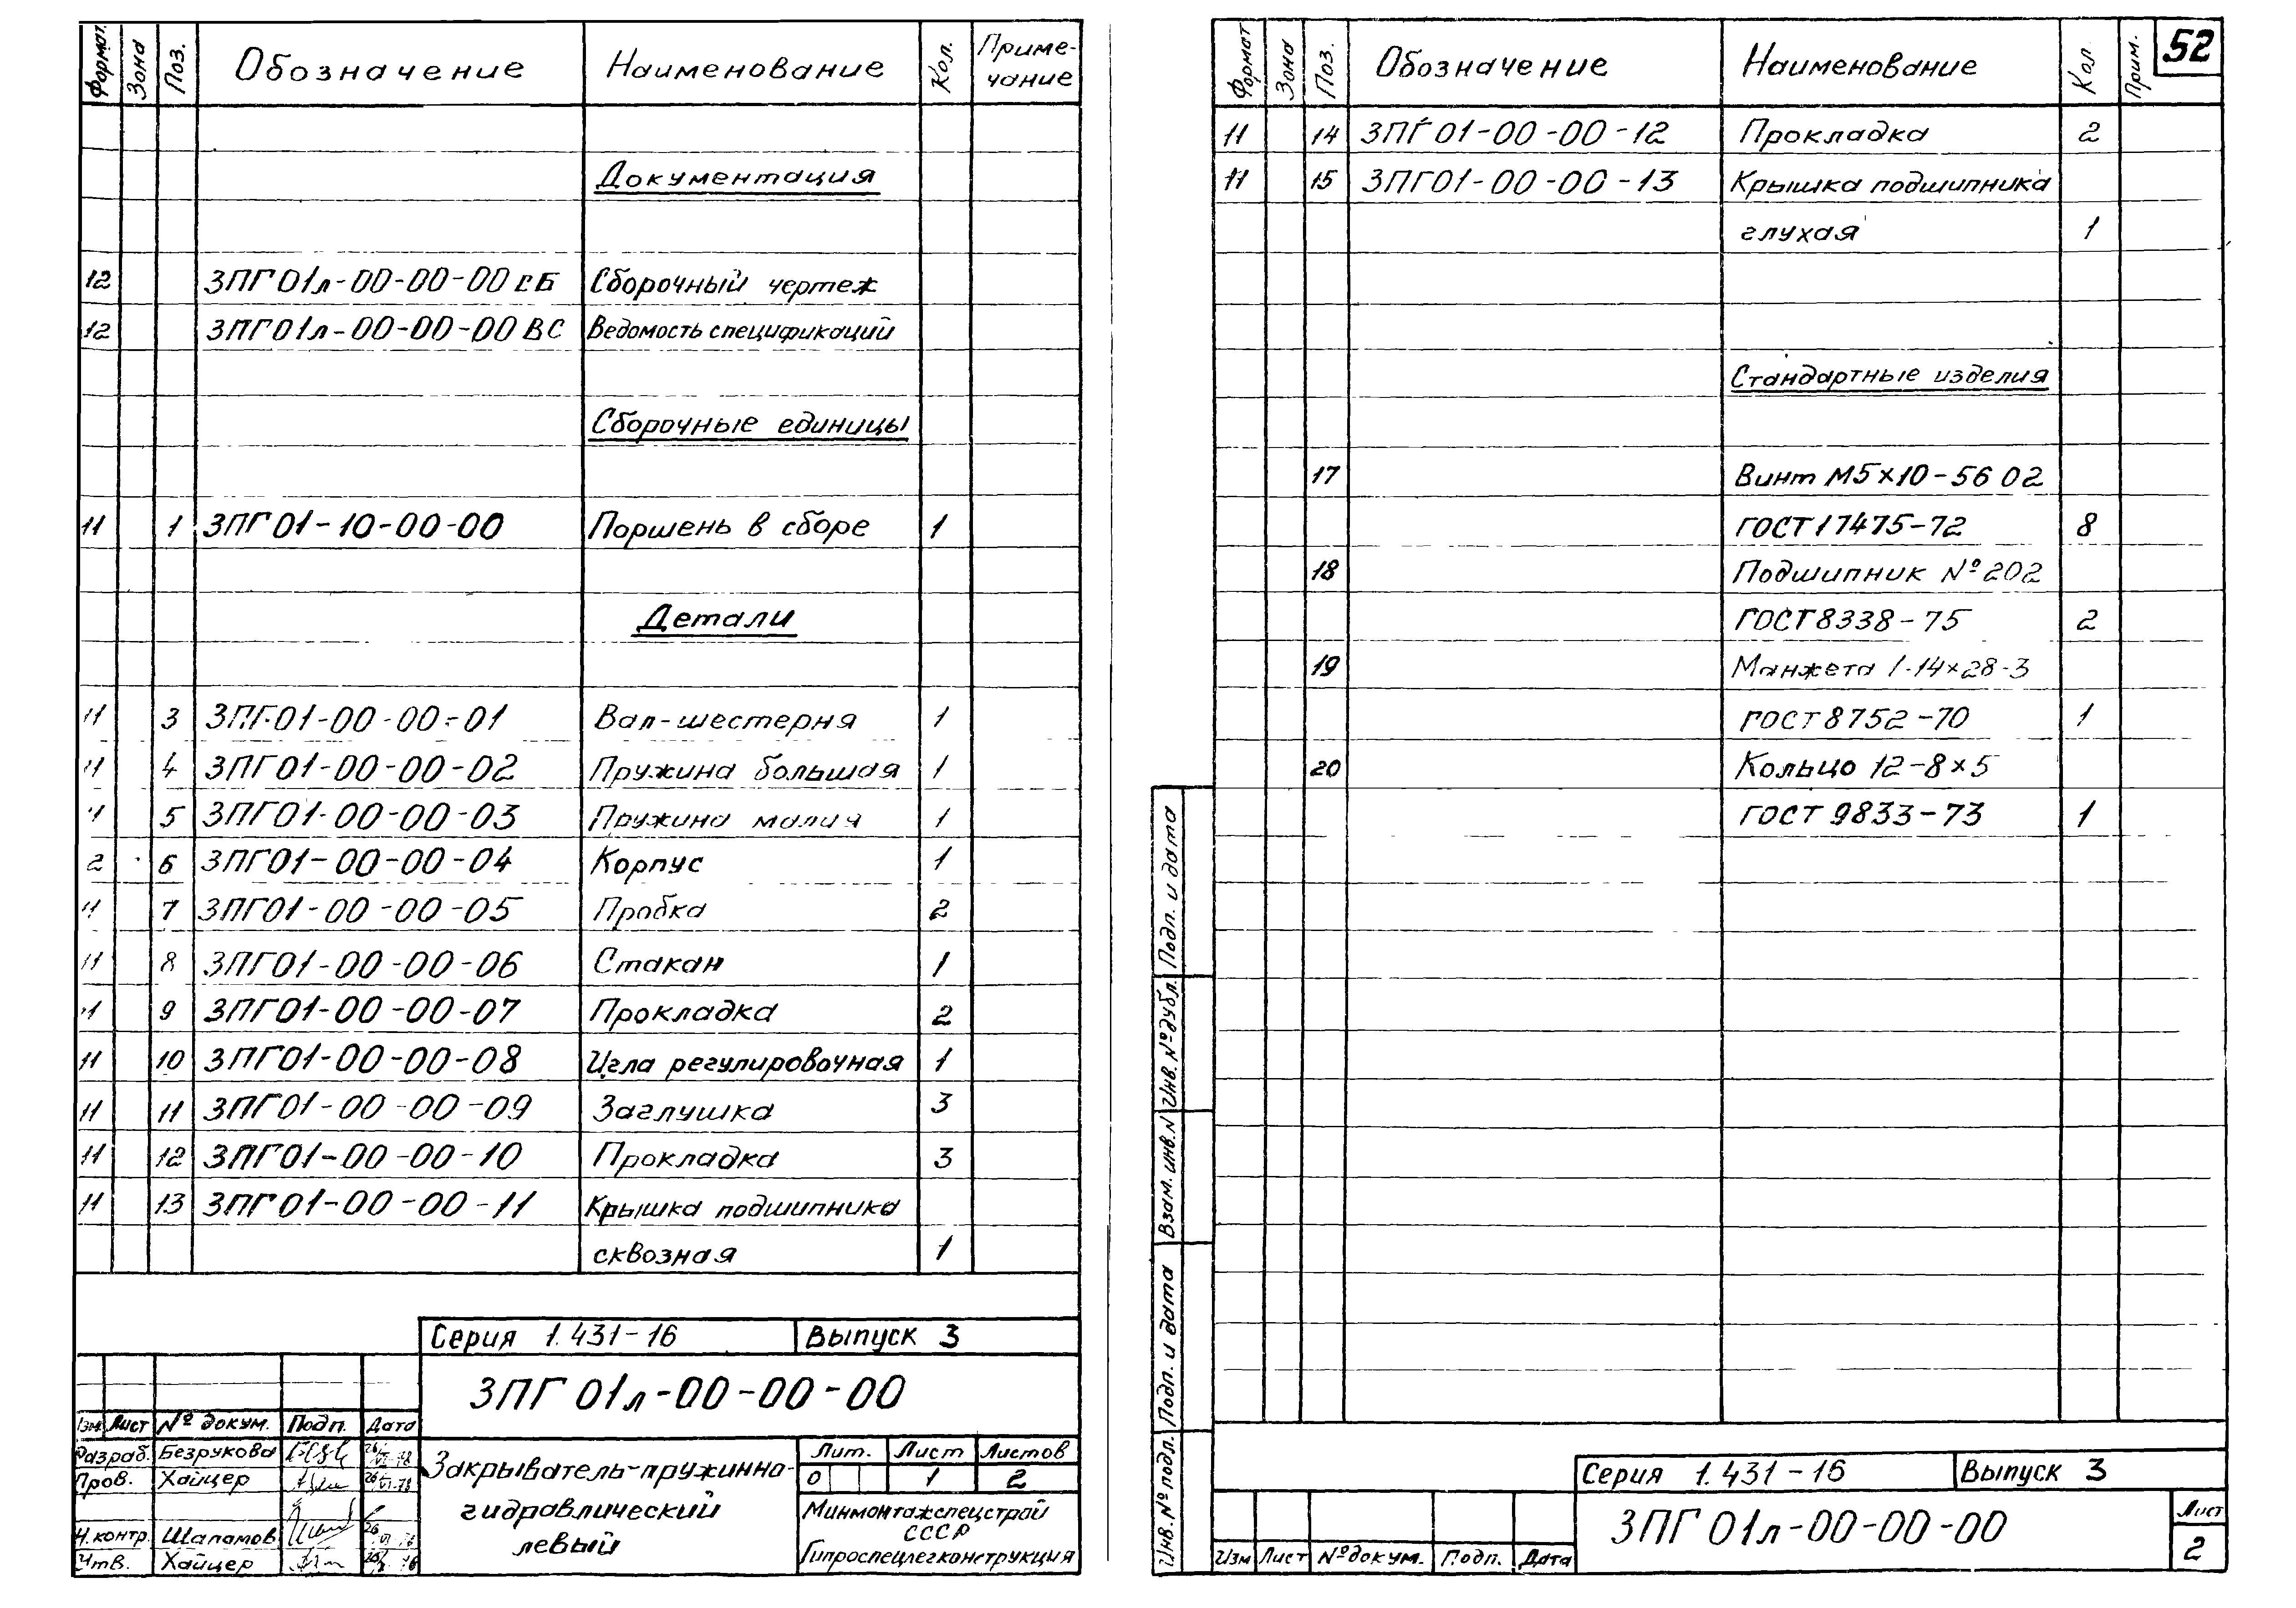 Формат Зона Поз. Обозначение Наименование Кол. Приме-
чание
Документация
12 ЗПГ01л-00-00-00 СБ Сборочный чертеж
12 ЗПГ01л-00-00-00 ВС Ведомость спецификаций
Сборочные единицы
11 1 ЗПГ01-10-00-00 Поршень в сборе 1
Детали
11 3 ЗПГ01-00-00-01 Вал-шестерня 1
11 4 ЗПГ01-00-00-02 Пружина большая 1
11 5 ЗПГ01-00-00-03 Пружина малая 1
2 6 ЗПГ01-00-00-04 Корпус 1
11 7 ЗПГ01-00-00-05 Пробка 2
11 8 ЗПГ01-00-00-06 Стакан 1
11 9 ЗПГ01-00-00-07 Прокладка 2
11 10 ЗПГ01-00-00-08 Игла регулировочная 1
11 11 ЗПГ01-00-00-09 Заглушка 3
11 12 ЗПГ01-00-00-10 Прокладка 3
11 13 ЗПГ01-00-00-11 Крышка подшипника
сквозная 1
Серия 1.431-16 Выпуск 3
ЗПГ 01л-00-00-00
Изм Лист № докум. Подп. Дата
Разраб. Безрукова
Пров. Хайцер
Н.контр. Шаламов
Утв. Хайцер
Закрыватель-пружинно-
гидравлический
левый
Лит. Лист Листов
О 1 2
Минмонтажспецстрой
СССР
Гипроспецлегконструкция
Формат Зона Поз. Обозначение Наименование Кол. Прим. 52
11 14 ЗПГ01-00-00-12 Прокладка 2
11 15 ЗПГ01-00-00-13 Крышка подшипника
глухая 1
Стандартные изделия
17 Винт М5х10-56 02
ГОСТ17475-72 8
18 Подшипник №202
ГОСТ8338-75 2
19 Манжета 1-14×28-3
ГОСТ8752-70 1
20 Кольцо 12-8×5
ГОСТ 9833-73 1
Подп. и дата
Инв. № дубл.
Взам. инв. N
Подп. и дата
Инв. № подл.
Серия 1.431-16 Выпуск 3
ЗПГ 01л-00-00-00
Изм Лист № докум. Подп. Дата
Лист
2